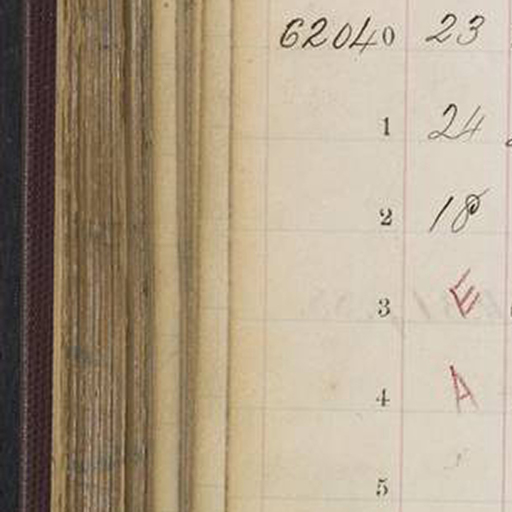 62040 23
1 24
2 18
3 E
4 A
5